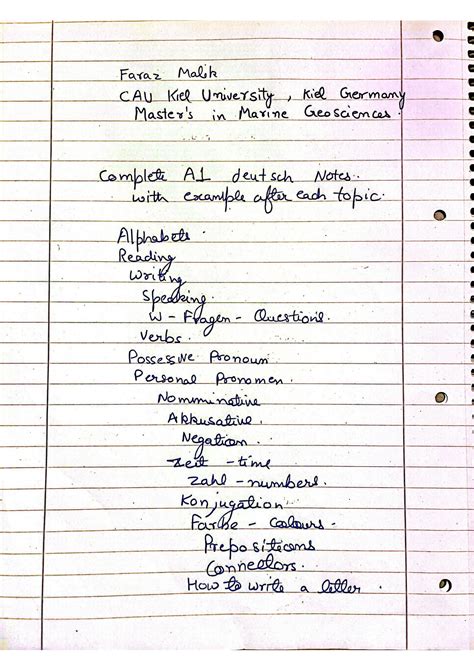 Faraz Malik
CAU Kiel University, Kiel Germany
Master's in Marine Geosciences.
Complete A1 deutsch Notes.
with example after each topic.
Alphabets.
Reading
Writing
Speaking.
W - Fragen - Questions.
Verbs.
Possessive Pronoun
Personal Pronomen.
Nomminative
Akkusative.
Negation.
Zeit - time
Zahl - numbers.
Konjugation
Farbe - Colours.
Prepositions
Connectors.
How to write a letter.